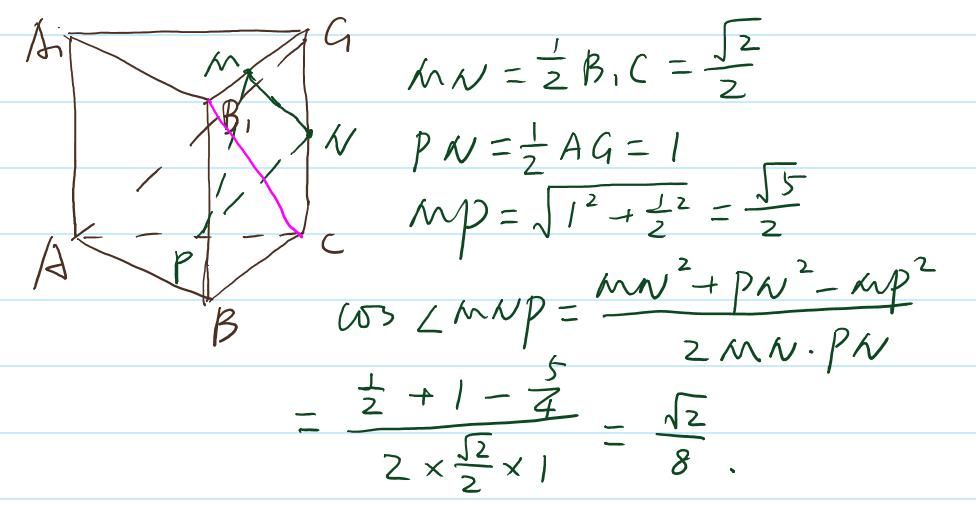 A₁ G
M
B₁
N
A P C
B
MN = 1/2 B₁C = √2/2
PN = 1/2 AG = 1
MP = √(1² + 1/2²) = √5/2
cos ∠MNP = (MN² + PN² − MP²)/(2MN · PN)
= (1/2 + 1 − 5/4)/(2 × √2/2 × 1) = √2/8 .